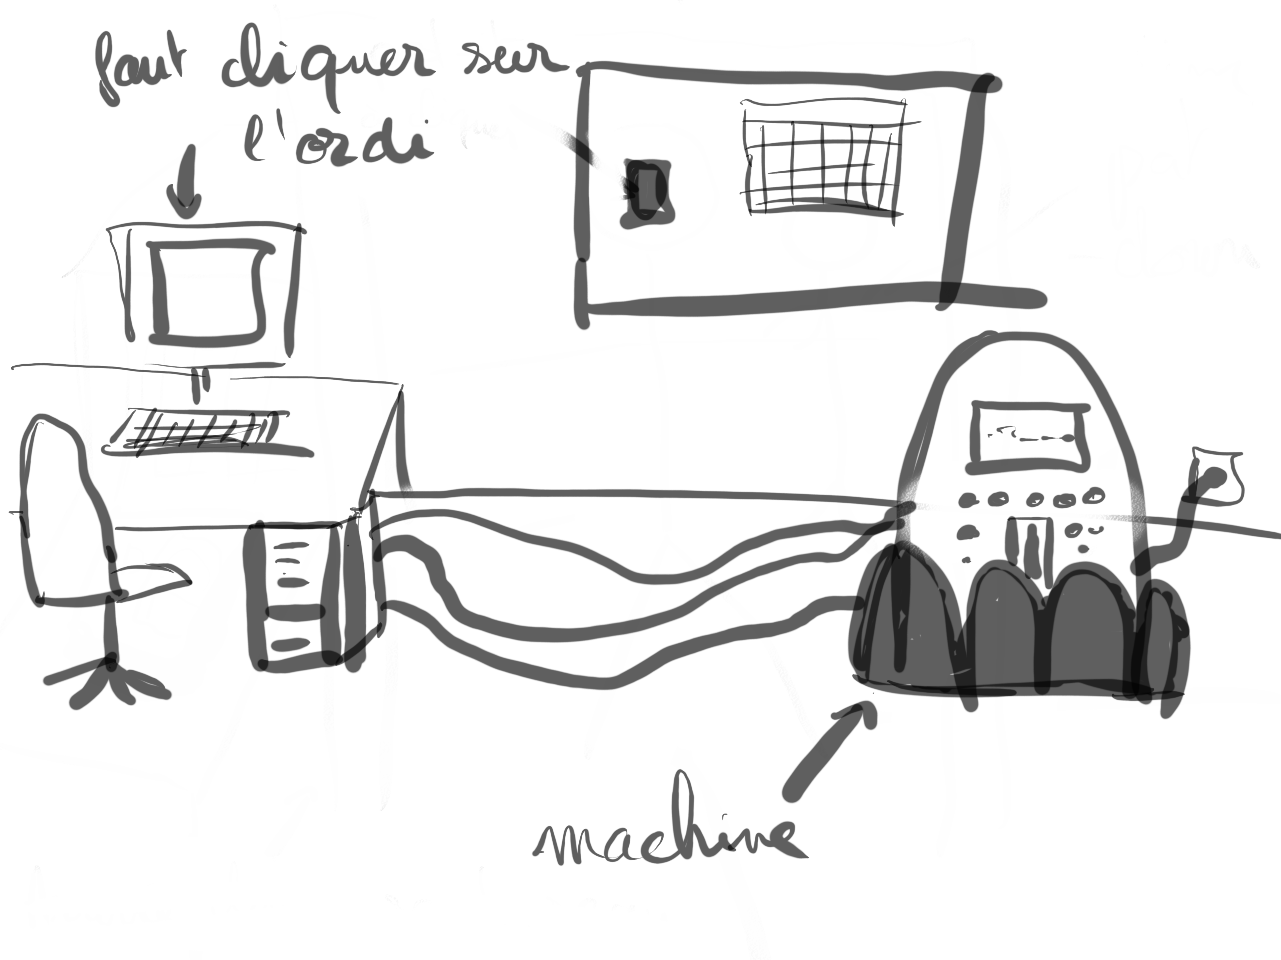 faut cliquer sur
l'ordi
machine